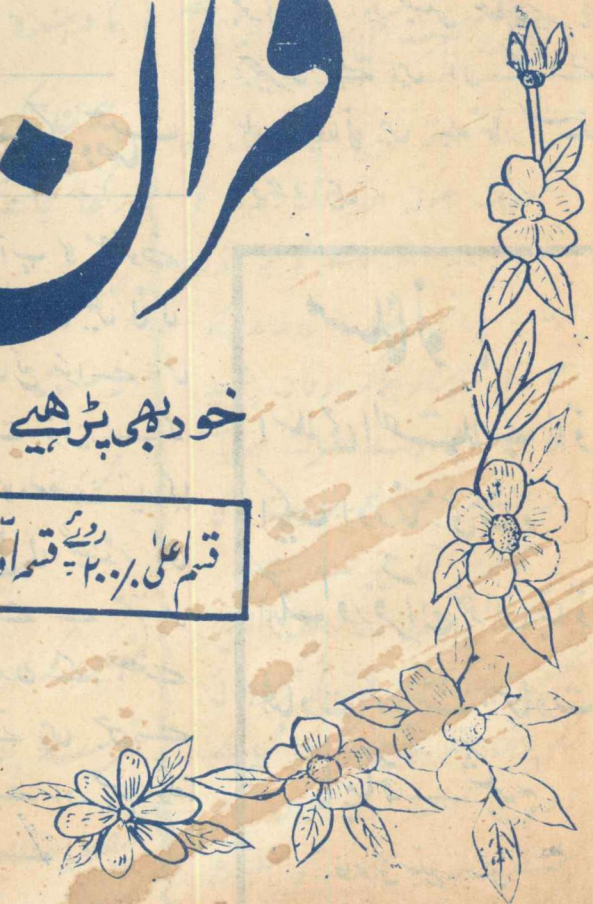 قرآن
خود بھی پڑھیے
قسم اعلیٰ ۲۰۰/۰ روپے قسم